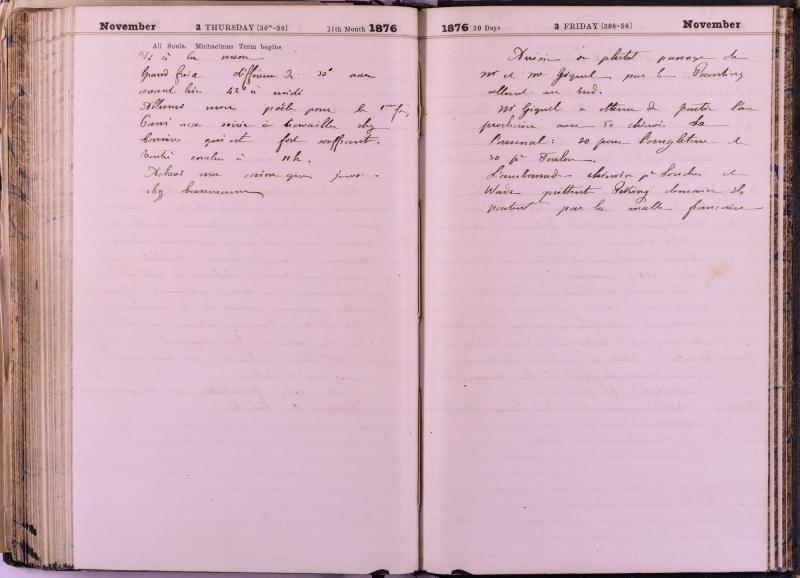 November 2 THURSDAY [307-59] 11th Month 1876
All Souls. Michaelmas Term begins
à la mer
Grand froid différence de 30° avec
avant hier 42° à midi
Allumé mon poêle pour la 1ère fois
Passé ma soirée à travailler chez
qui est fort souffrant.
Rentré coucher à 11h.
Acheté une
chez
1876 30 Days 3 FRIDAY [308-58] November
Arrivée ou plutôt passage de
Mr et Me Giquel par le
allant au Sud.
Mr Giquel a obtenu de partir l'an
prochain avec 50 chinois de
l'arsenal: 20 pour l'Angleterre et
30 pr Toulon.
L'ambassade chinoise pr Londres et
Wade quittent Peking demain ils
partent par la malle française